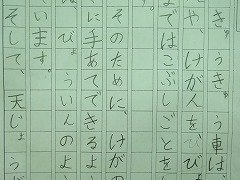 きゅうきゅう車は、
や、けが人を、びょ
まではこぶしごとを
。
そのために、けが
に手あてできるよ
びょういんのよ
います。
そして、天じょうが